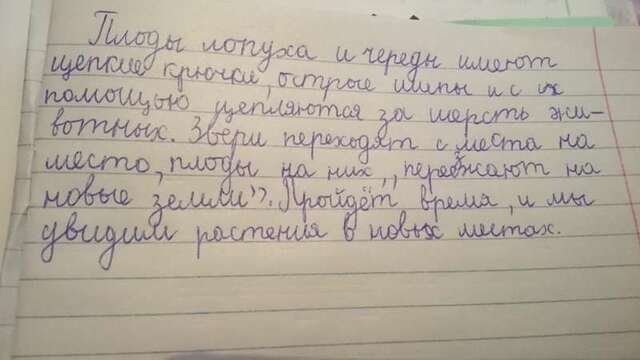 Плоды лопуха и череды имеют
цепкие крючки, острые шипы и с их
помощью цепляются за шерсть жи-
вотных. Звери переходят с места на
место, плоды на них „переезжают на
новые земли". Пройдёт время, и мы
увидим растения в новых местах.